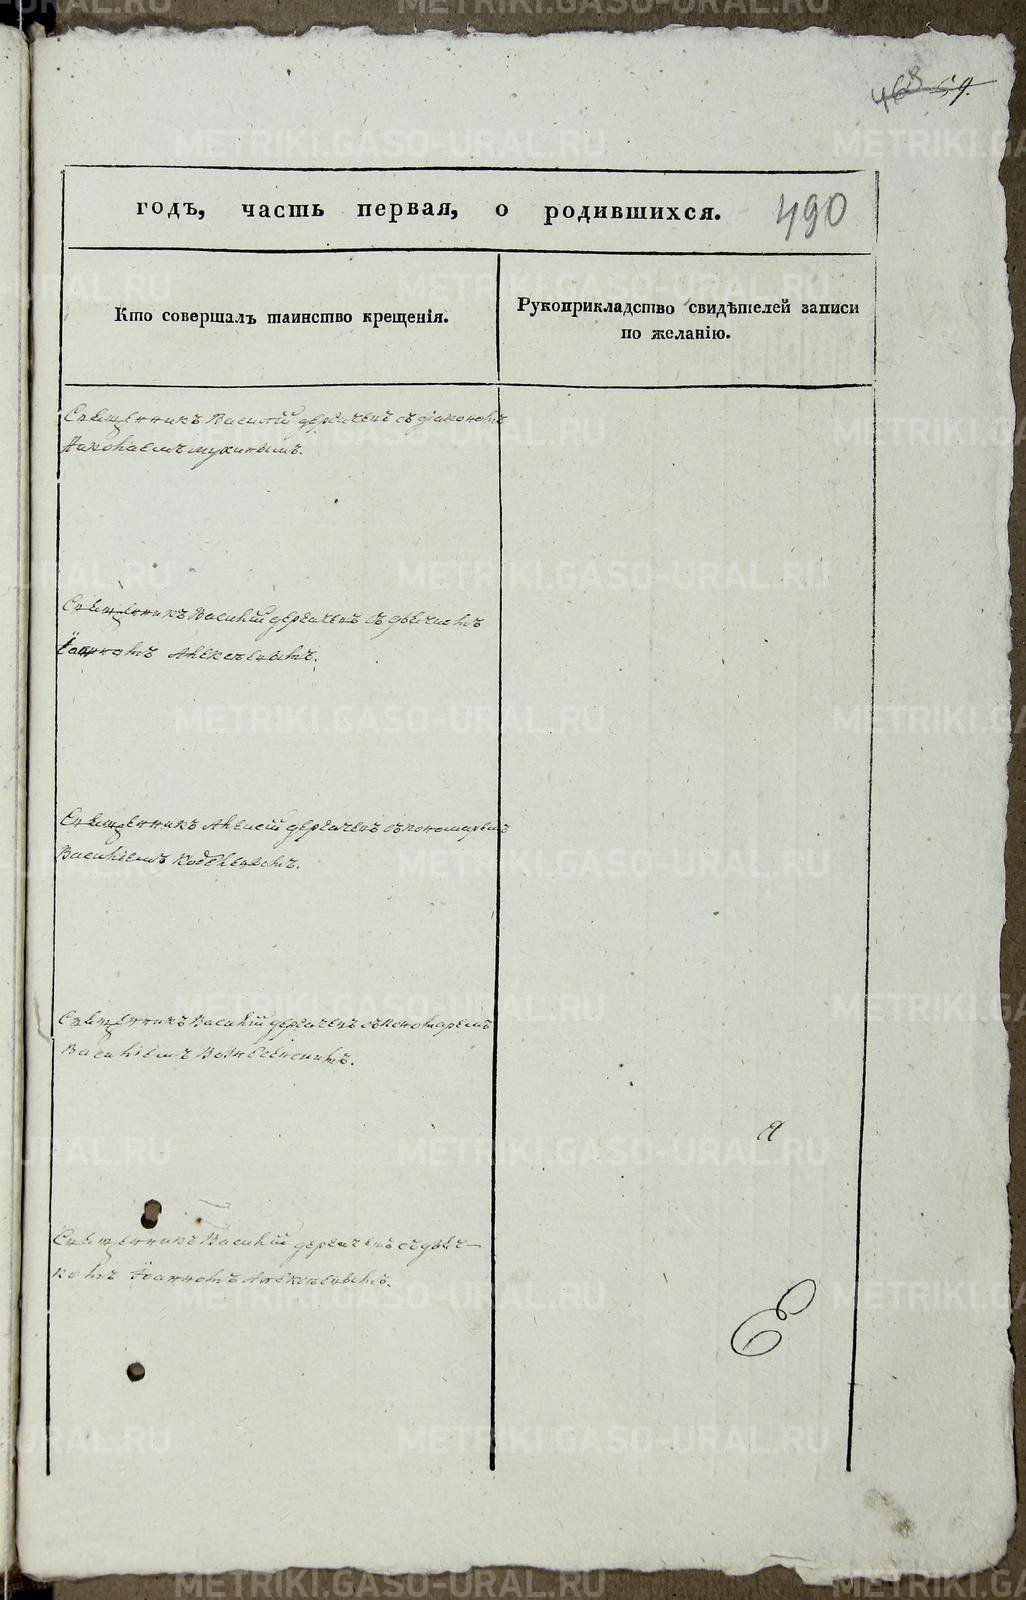 468 59.
годъ, часть первая, о родившихся. 490
Кто совершалъ таинство крещенія.
Рукоприкладство свидѣтелей записи
по желанію.
Священникъ Василій дерягинъ съ діакономъ
Николаемъ мухинымъ.
Священникъ Василій дерягинъ съ дьячкомъ
Іоанномъ Алексѣевымъ.
Священникъ Алексій дерягинъ съ пономаремъ
Василіемъ
Священникъ Василій дерягинъ съ пономаремъ
Василіемъ Вознесенскимъ.
Священникъ Василій дерягинъ съ дьяч-
комъ Іоанномъ Алексѣевымъ.
METRIKI.GASO-URAL.RU